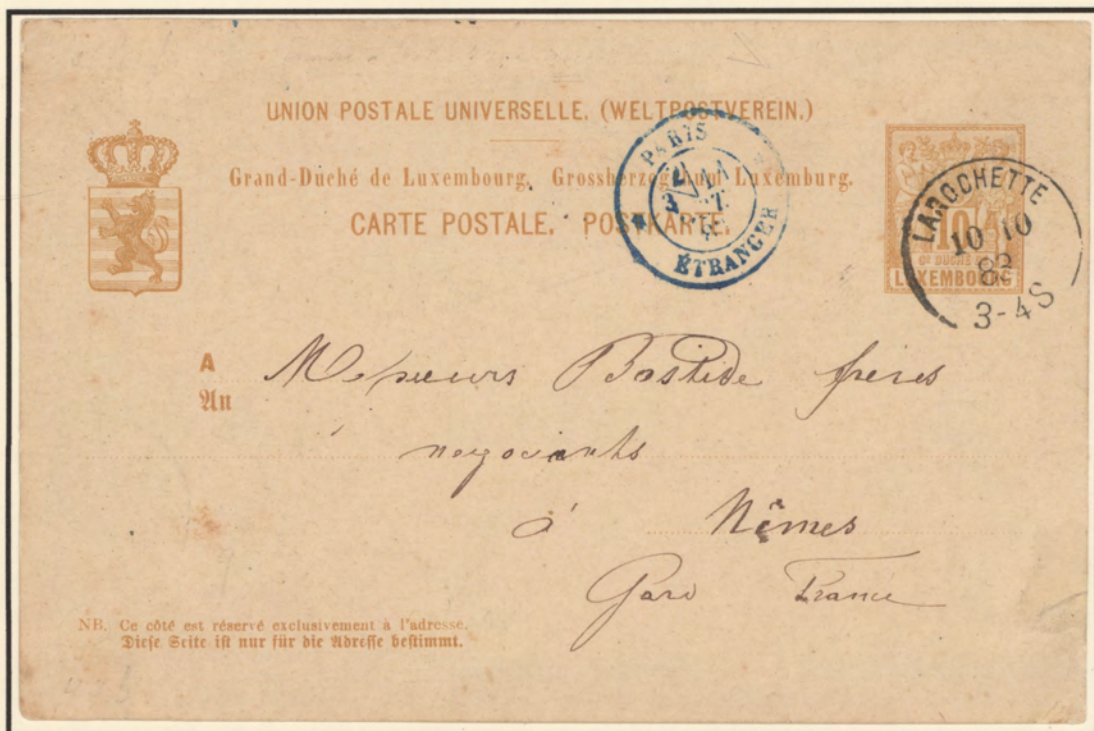 UNION POSTALE UNIVERSELLE. (WELTPOSTVEREIN.)
Grand-Duché de Luxembourg. Grossherzogthum Luxemburg.
CARTE POSTALE. POSTKARTE.
PARIS
ÉTRANGER
10
Gd DUCHÉ DE
LUXEMBOURG
LAROCHETTE
10 10
83
3-4S
A
An
Messieurs Bastide frères
négociants
à Nîmes
Gard France
NB. Ce côté est réservé exclusivement à l'adresse.
Diese Seite ist nur für die Adresse bestimmt.